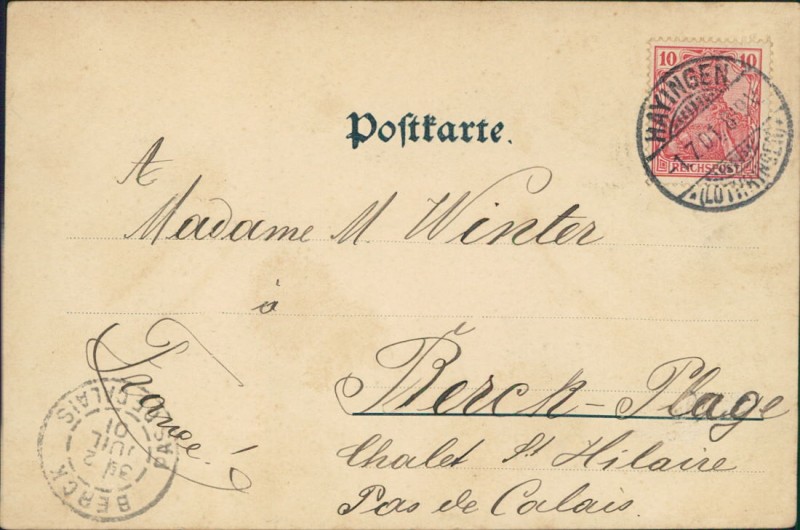 10 10
REICHSPOST
HAYINGEN
1.7.01
(LOTHRINGEN)
Postkarte.
A
Madame M. Winter
à
Berck-Plage
Chalet St Hilaire
Pas de Calais.
France!
BERCK
PAS-DE-CALAIS
2
JUIL
01